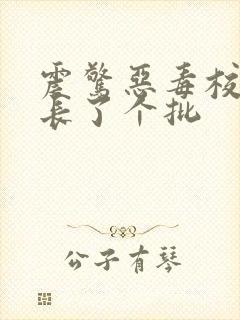 震惊恶毒校
长了个批
公子有琴